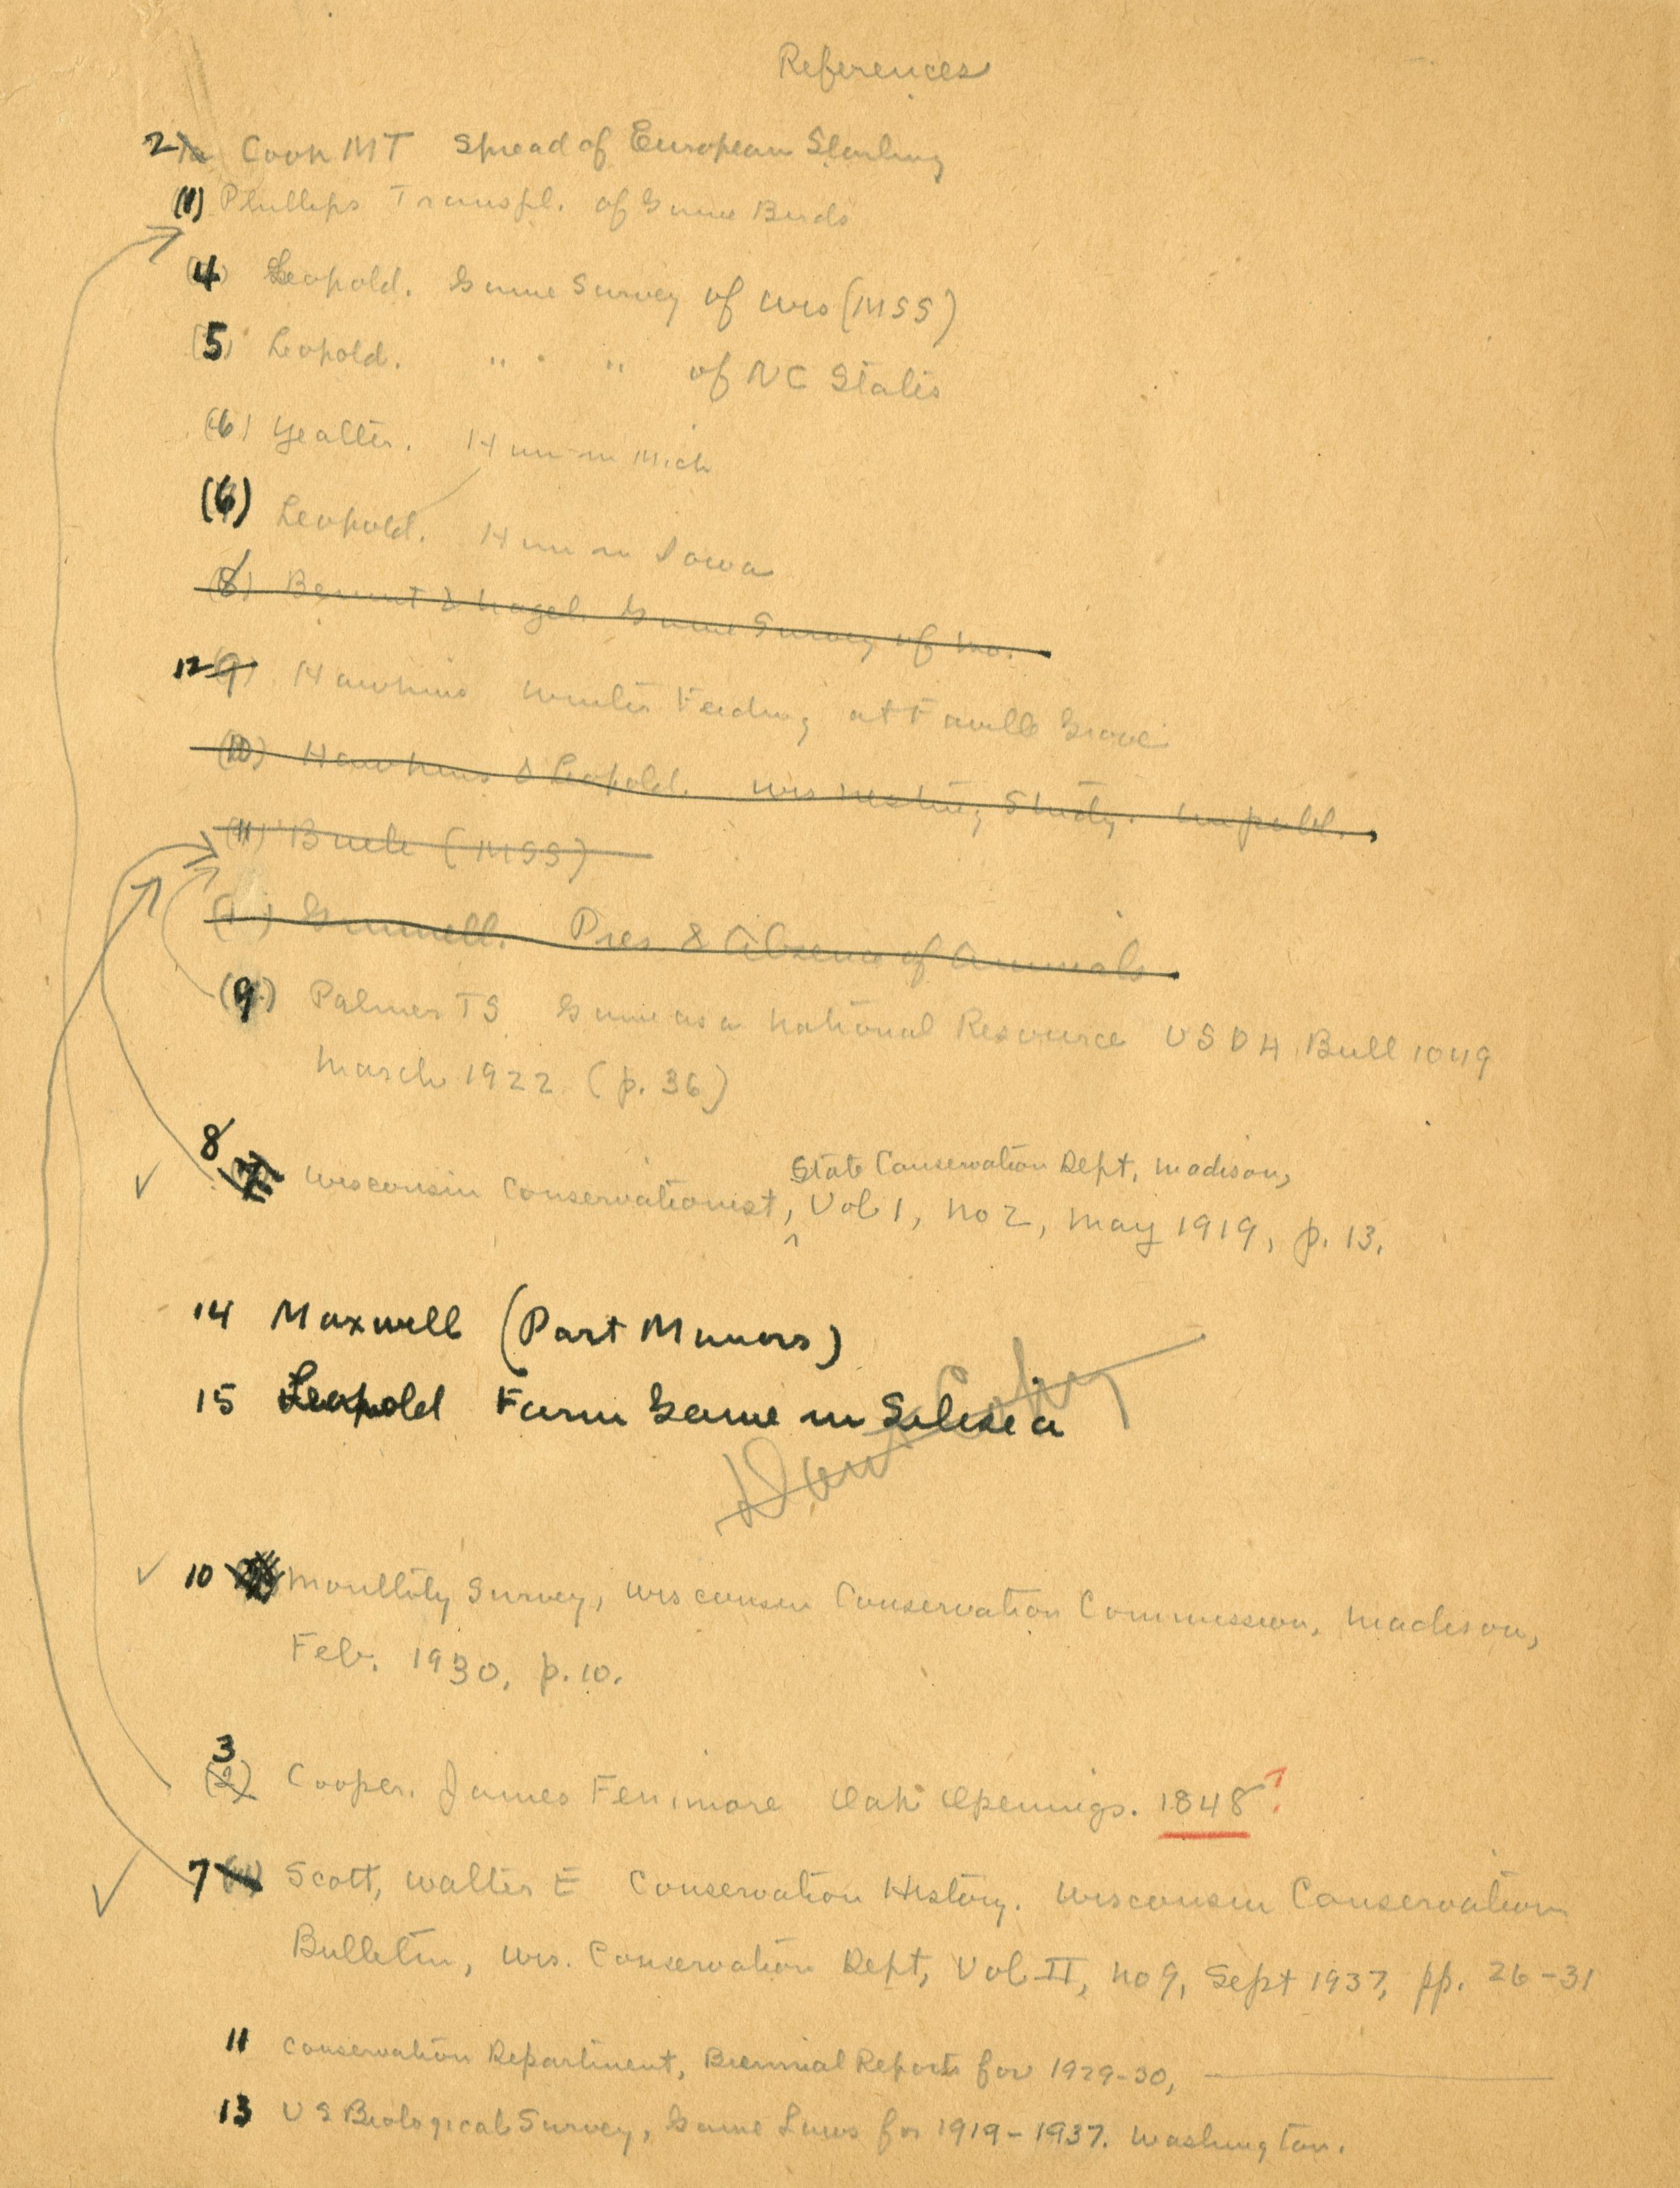 References
2 Cook MT Spread of European Starling
(1) Phillips Transpl. of Game Birds
(4) Leopold. Game Survey of Wis (MSS)
(5) Leopold. " " " of NC States
(6) Yeatter. Hun in Mich
(6) Leopold. Hun in Iowa
(8) Bennitt & Nagel. Game Survey of Mo.
12 (9) Hawkins Winter Feeding at Faville Grove
(10) Hawkins & Leopold. Wis Nesting Study. Unpubl.
(11) Buele (MSS)
Grinnell. Pres & Absence of Animals
(9) Palmer TS Game as a National Resource USDA Bull 1049
March 1922 (p. 36)
State Conservation Dept, Madison,
8 Wisconsin Conservationist, ^ Vol 1, No 2, May 1919, p. 13.
14 Maxwell (Part Munns)
15 Leopold Farm Game in Silesia
10 Monthly Survey, Wisconsin Conservation Commission, Madison,
Feb. 1930, p. 10.
3
(2) Cooper. James Fenimore Oak Openings. 1848?
7 Scott, Walter E Conservation History. Wisconsin Conservation
Bulletin, Wis. Conservation Dept, Vol II, No 9, Sept 1937, pp. 26-31
11 Conservation Department, Biennial Reports for 1929-30,
13 US Biological Survey, Game Laws for 1919-1937. Washington.